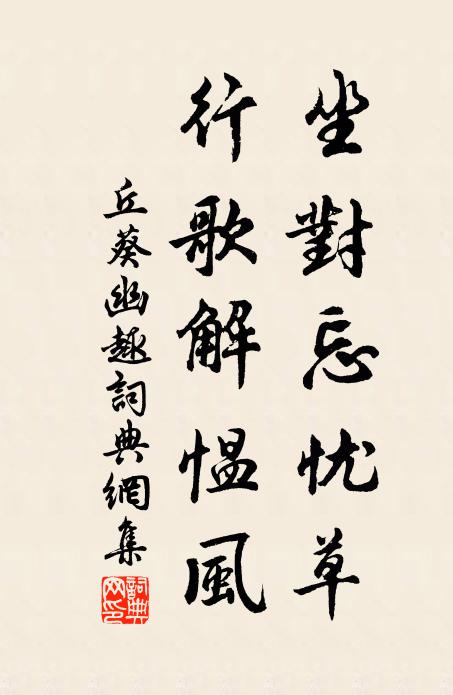 坐對忘忧草
行歌解愠風
丘葵幽趣詞典網集
詞典網印